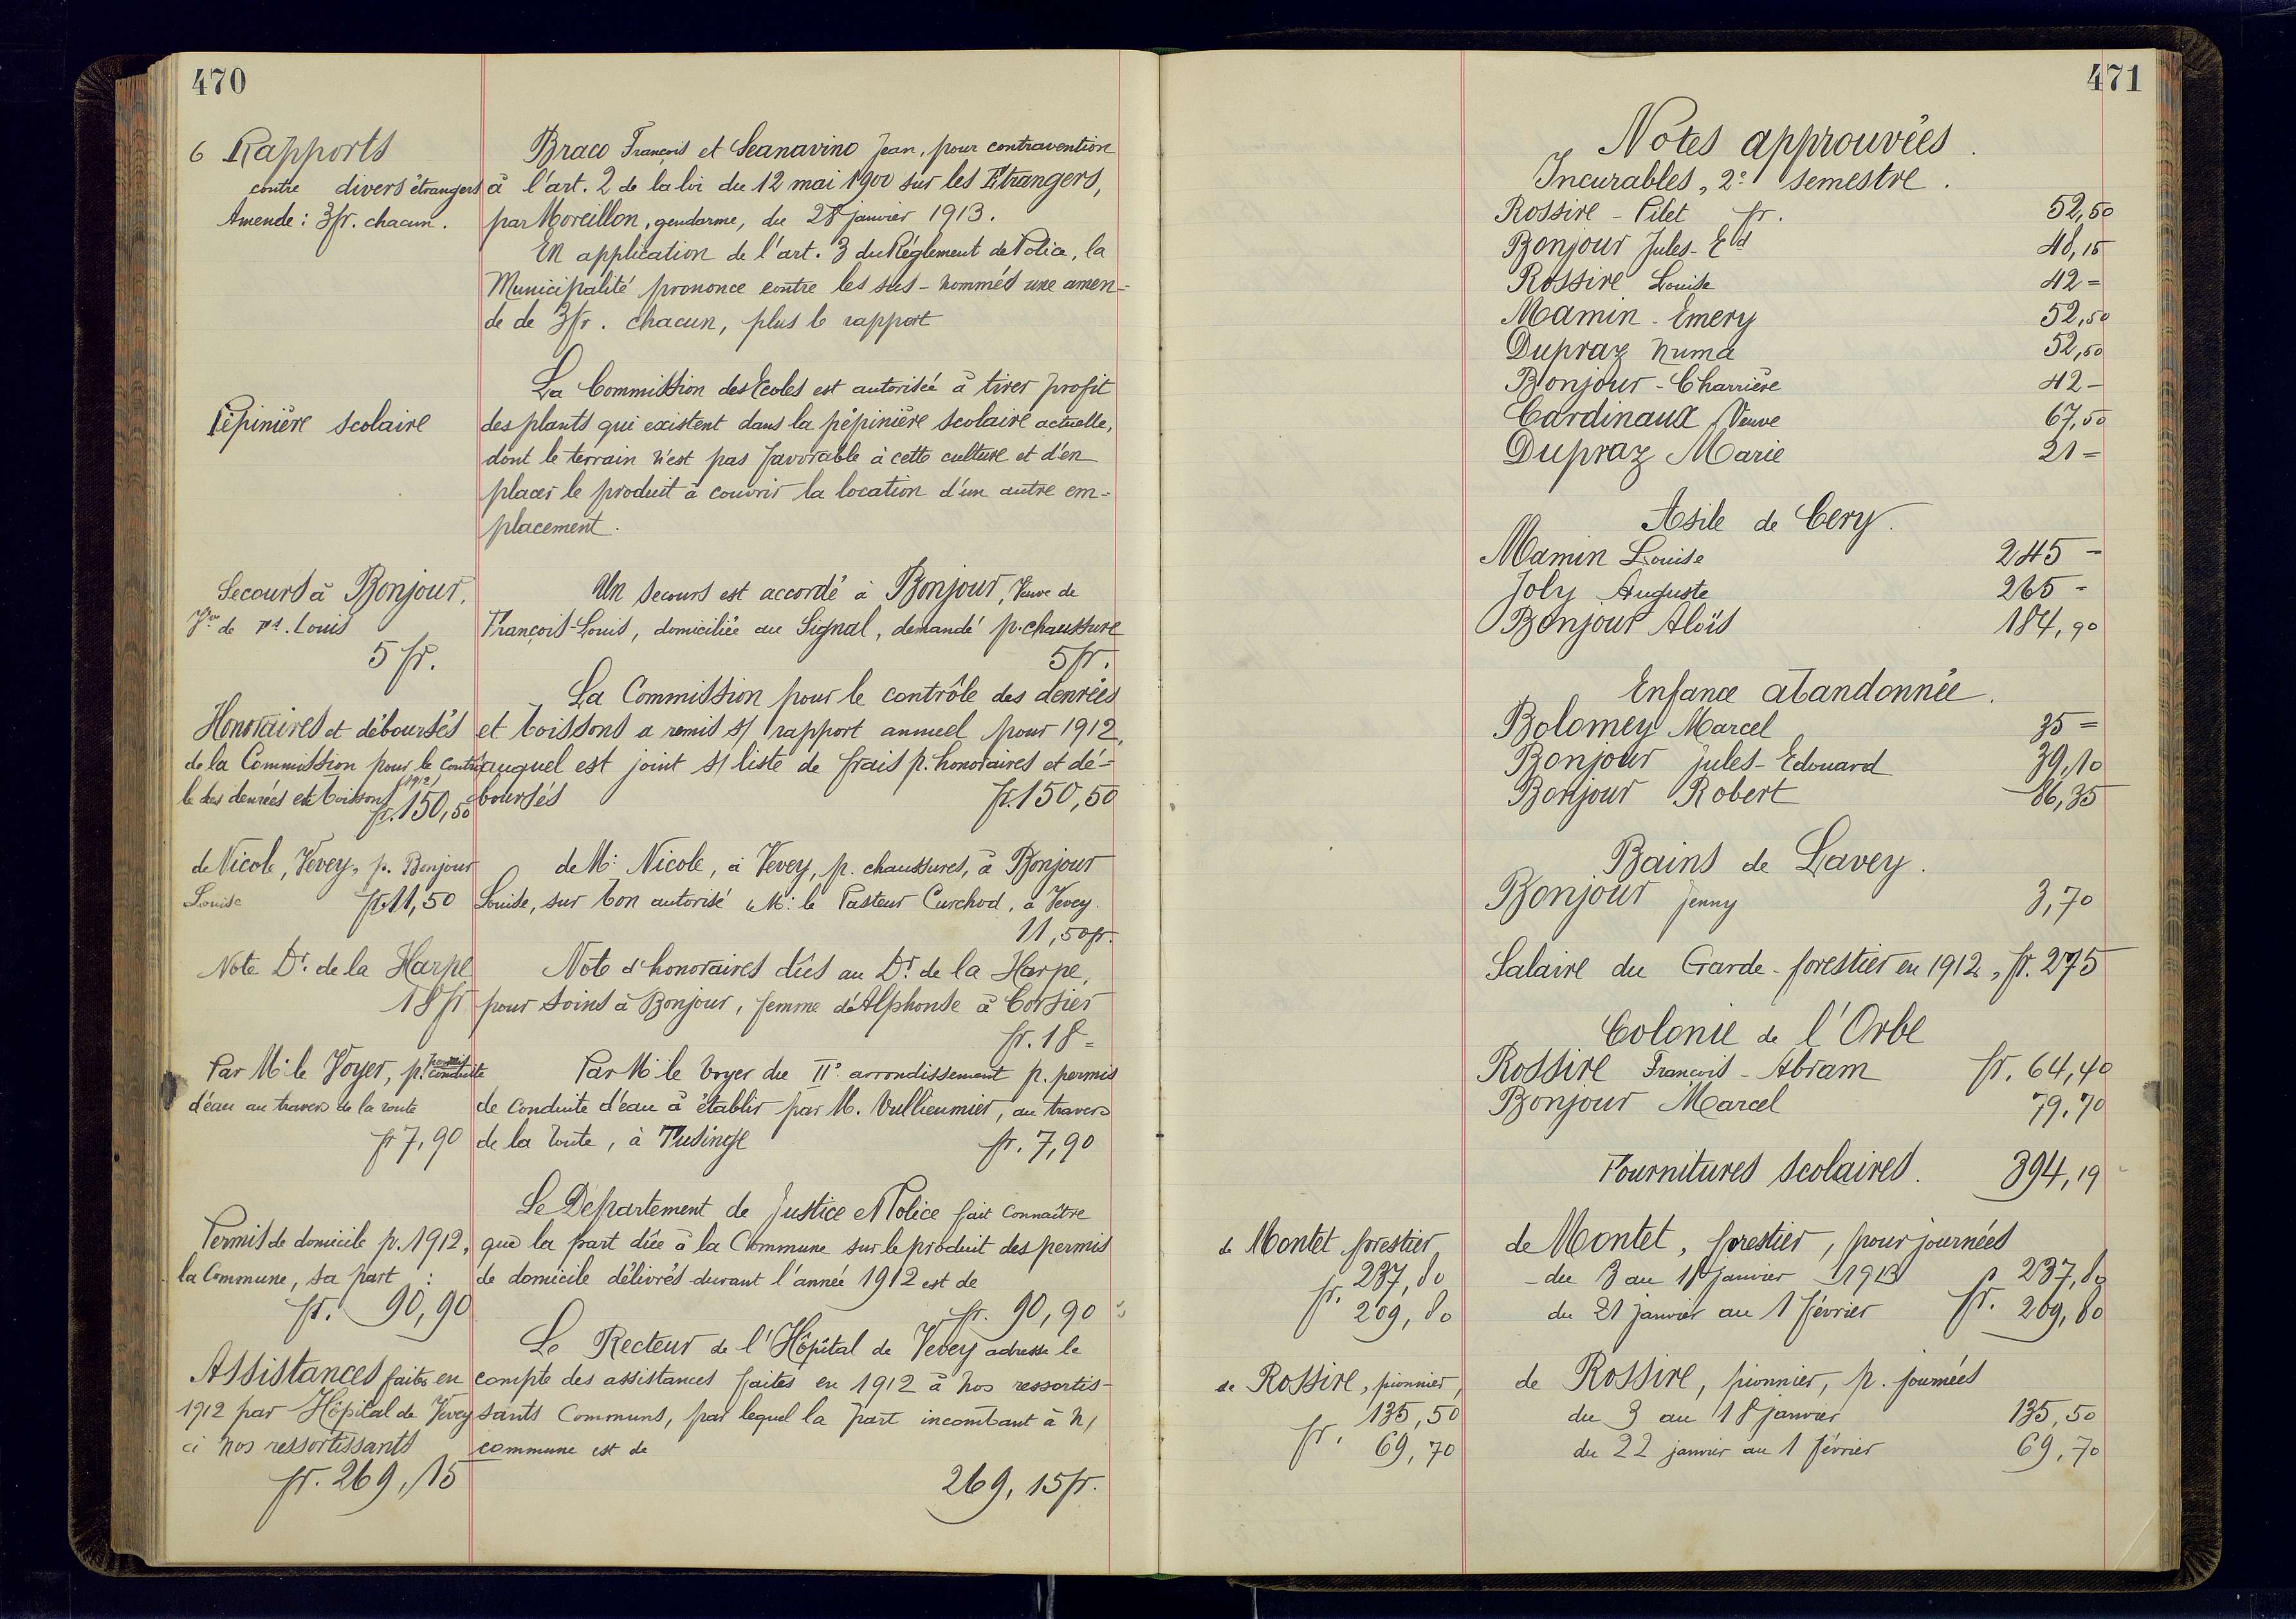 470
6 Rapports
contre divers étrangers
Amende : 3 fr. chacun.
Braco François et Seanavino Jean, pour contravention
à l'art. 2 de la loi du 12 mai 1900 sur les Etrangers,
par Moreillon, gendarme, du 28 janvier 1913.
En application de l'art. 3 du Réglement de Police, la
Municipalité prononce contre les sus-nommés une amen-
de de 3 fr. chacun, plus le rapport
Pépinière scolaire
La Commission des Ecoles est autorisée à tirer profit
des plants qui existent dans la pépinière scolaire actuelle,
dont le terrain n'est pas favorable à cette culture et d'en
placer le produit à couvrir la location d'un autre em-
placement.
Secours à Bonjour,
Vve de Fs. Louis
5 fr.
Un secours est accordé à Bonjour, Veuve de
François-Louis, domiciliée au Signal, demandé p. chaussure
5 fr.
Honoraires et déboursés
de la Commission pour le contrô
le des denrées et boissons (1912)
fr. 150,50
La Commission pour le contrôle des denrées
et boissons a remis s/ rapport annuel pour 1912,
auquel est joint s/ liste de frais p. honoraires et dé-
boursés fr. 150,50
de Nicole, Vevey, p. Bonjour
Louise fr. 11,50
de M. Nicole, à Vevey, p. chaussures, à Bonjour
Louise, sur bon autorisé de M. le Pasteur Curchod, à Vevey.
11,50 fr.
Note Dr. de la Harpe
18 fr
Note d'honoraires dûs au Dr. de la Harpe,
pour soins à Bonjour, femme d'Alphonse à Corsier
fr. 18 =
Par M. le Voyer, p. permis conduite
d'eau au travers de la route
fr 7,90
Par M. le Voyer du IIe arrondissement p. permis
de conduite d'eau à établir par M. Vullieumier, au travers
de la route, à Pusinge fr. 7,90
Permis de domicile p. 1912,
la Commune, sa part :
fr. 90,90
Le Département de Justice et Police fait connaître
que la part dûe à la Commune sur le produit des permis
de domicile délivrés durant l'année 1912 est de
fr. 90,90
Assistances faites en
1912 par Hôpital de Vevey
à nos ressortissants
fr. 269,15
Le Recteur de l'Hôpital de Vevey adresse le
compte des assistances faites en 1912 à nos ressortis-
sants Communs, par lequel la part incombant à n/
commune est de
269,15 fr.
471
Notes approuvées.
Incurables, 2e semestre.
Rossire - Pilet fr. 52,50
Bonjour Jules-Ed 48,15
Rossire Louise 42 =
Mamin - Emery 52,50
Dupraz Numa 52,50
Bonjour - Charrière 42 -
Cardinaux Veuve 67,50
Dupraz Marie 21 =
Asile de Cery.
Mamin Louise 245 -
Joly Auguste 265 -
Bonjour Aloïs 184,90
Enfance abandonnée.
Bolomey Marcel 35 =
Bonjour Jules-Edouard 39,10
Bonjour Robert 86,35
Bains de Lavey.
Bonjour Jenny 3,70
Salaire du Garde-forestier en 1912, fr. 275
Colonie de l'Orbe
Rossire François-Abram fr. 64,40
Bonjour Marcel 79,70
Fournitures scolaires. 394,19
de Montet forestier
fr. 237,80
fr. 209,80
de Montet, forestier, pour journées
- du 3 au 18 janvier 1913 fr 237,80
du 21 janvier au 1 février fr. 209,80
de Rossire, pionnier,
135,50
fr. 69,70
de Rossire, pionnier, p. journées
du 3 au 18 janvier 135,50
du 22 janvier au 1 février 69,70